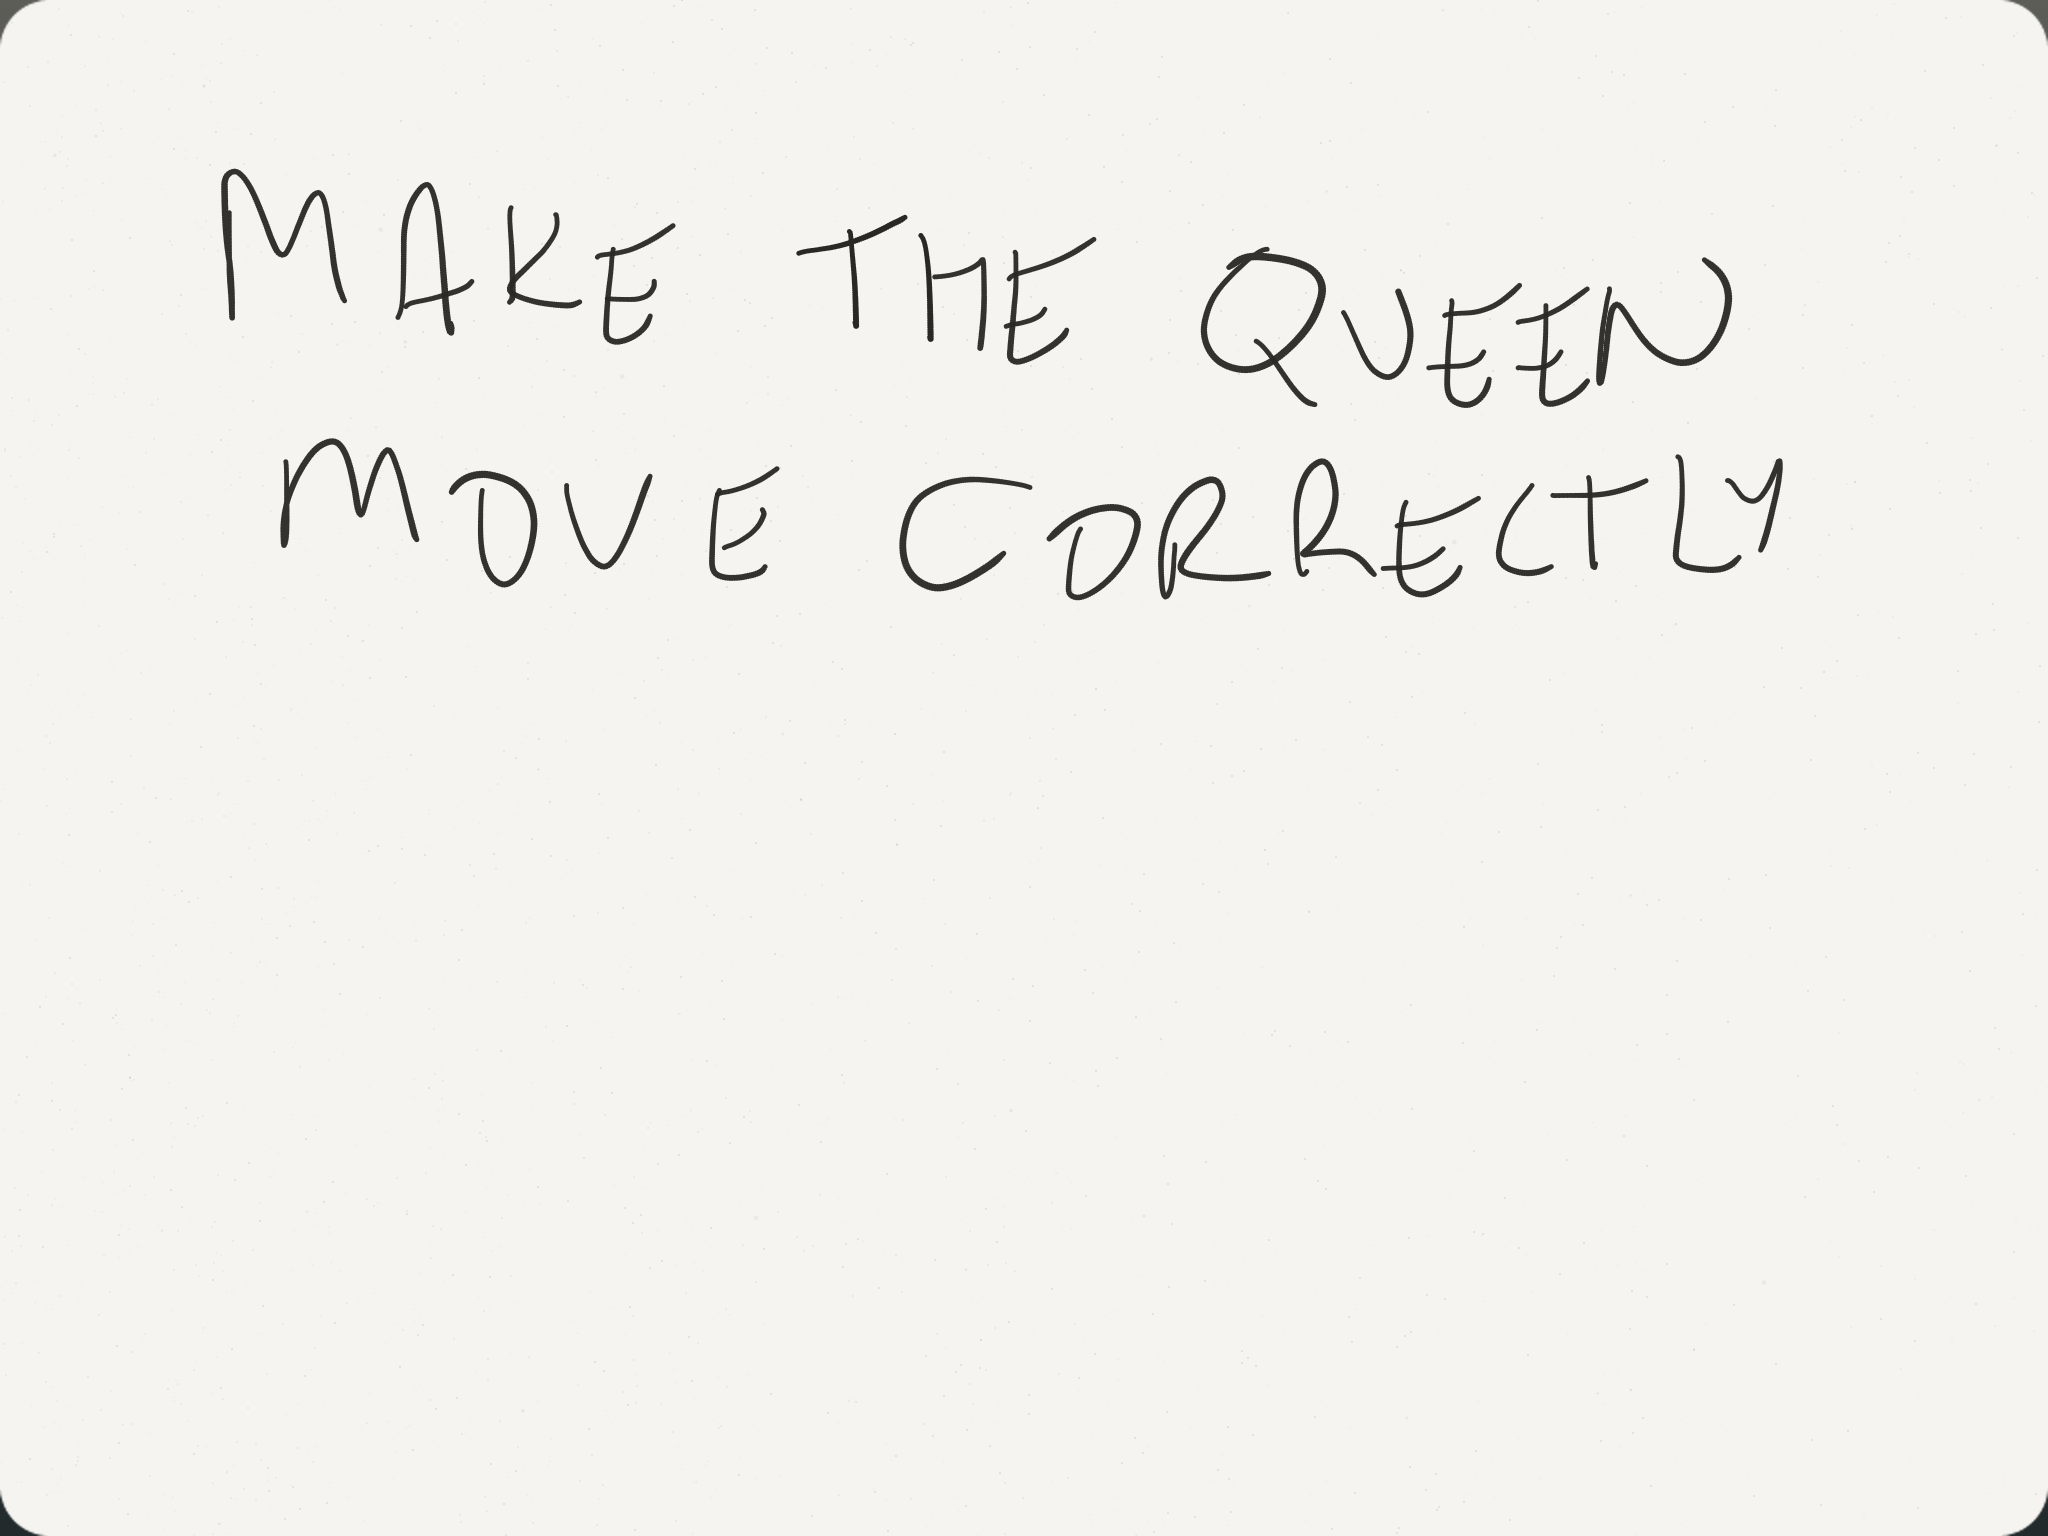 MAKE THE QUEEN
MOVE CORRECTLY